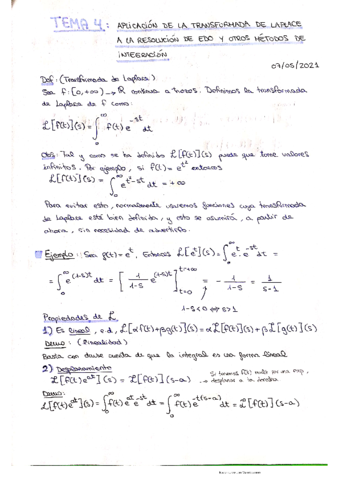 TEMA 4: APLICACIÓN DE LA TRANSFORMADA DE LAPLACE
A LA RESOLUCIÓN DE EDO Y OTROS MÉTODOS DE
INTEGRACIÓN
07/05/2021
Def: (Transformada de Laplace)
Sea f: [0,+∞) → ℝ continua a trozos. Definimos la transformada
de Laplace de f como:
ℒ[f(t)](s) = ∫₀^∞ f(t) e^{-st} dt
Obs: Tal y como se ha definido ℒ[f(t)](s) puede que tome valores
infinitos. Por ejemplo, si f(t) = e^{t²} entonces
ℒ[f(t)](s) = ∫₀^∞ e^{t²-st} dt = +∞
Para evitar esto, normalmente usaremos funciones cuya transformada
de Laplace está bien definida, y esto se asumirá, a partir de
ahora, sin necesidad de advertirlo.
Ejemplo: Sea f(t) = e^t. Entonces ℒ[e^t](s) = ∫₀^∞ e^t · e^{-st} dt =
= ∫₀^∞ e^{(1-s)t} dt = [1/(1-s) e^{(1-s)t}]_{t=0}^{t=+∞} = - 1/(1-s) = 1/(s-1)
1-s<0 ⇔ s>1
Propiedades de ℒ
1) Es lineal, e.d., ℒ[αf(t)+βg(t)](s) = αℒ[f(t)](s) + βℒ[g(t)](s)
Demo: (Linealidad)
Basta con darse cuenta de que la integral es una forma lineal
2) Desplazamiento
ℒ[f(t)e^{at}](s) = ℒ[f(t)](s-a)
Si tenemos f(t) mult por una exp,
desplazar a la derecha
Demo:
ℒ[f(t)e^{at}](s) = ∫₀^∞ f(t) e^{at} e^{-st} dt = ∫₀^∞ f(t) e^{-t(s-a)} dt = ℒ[f(t)](s-a)